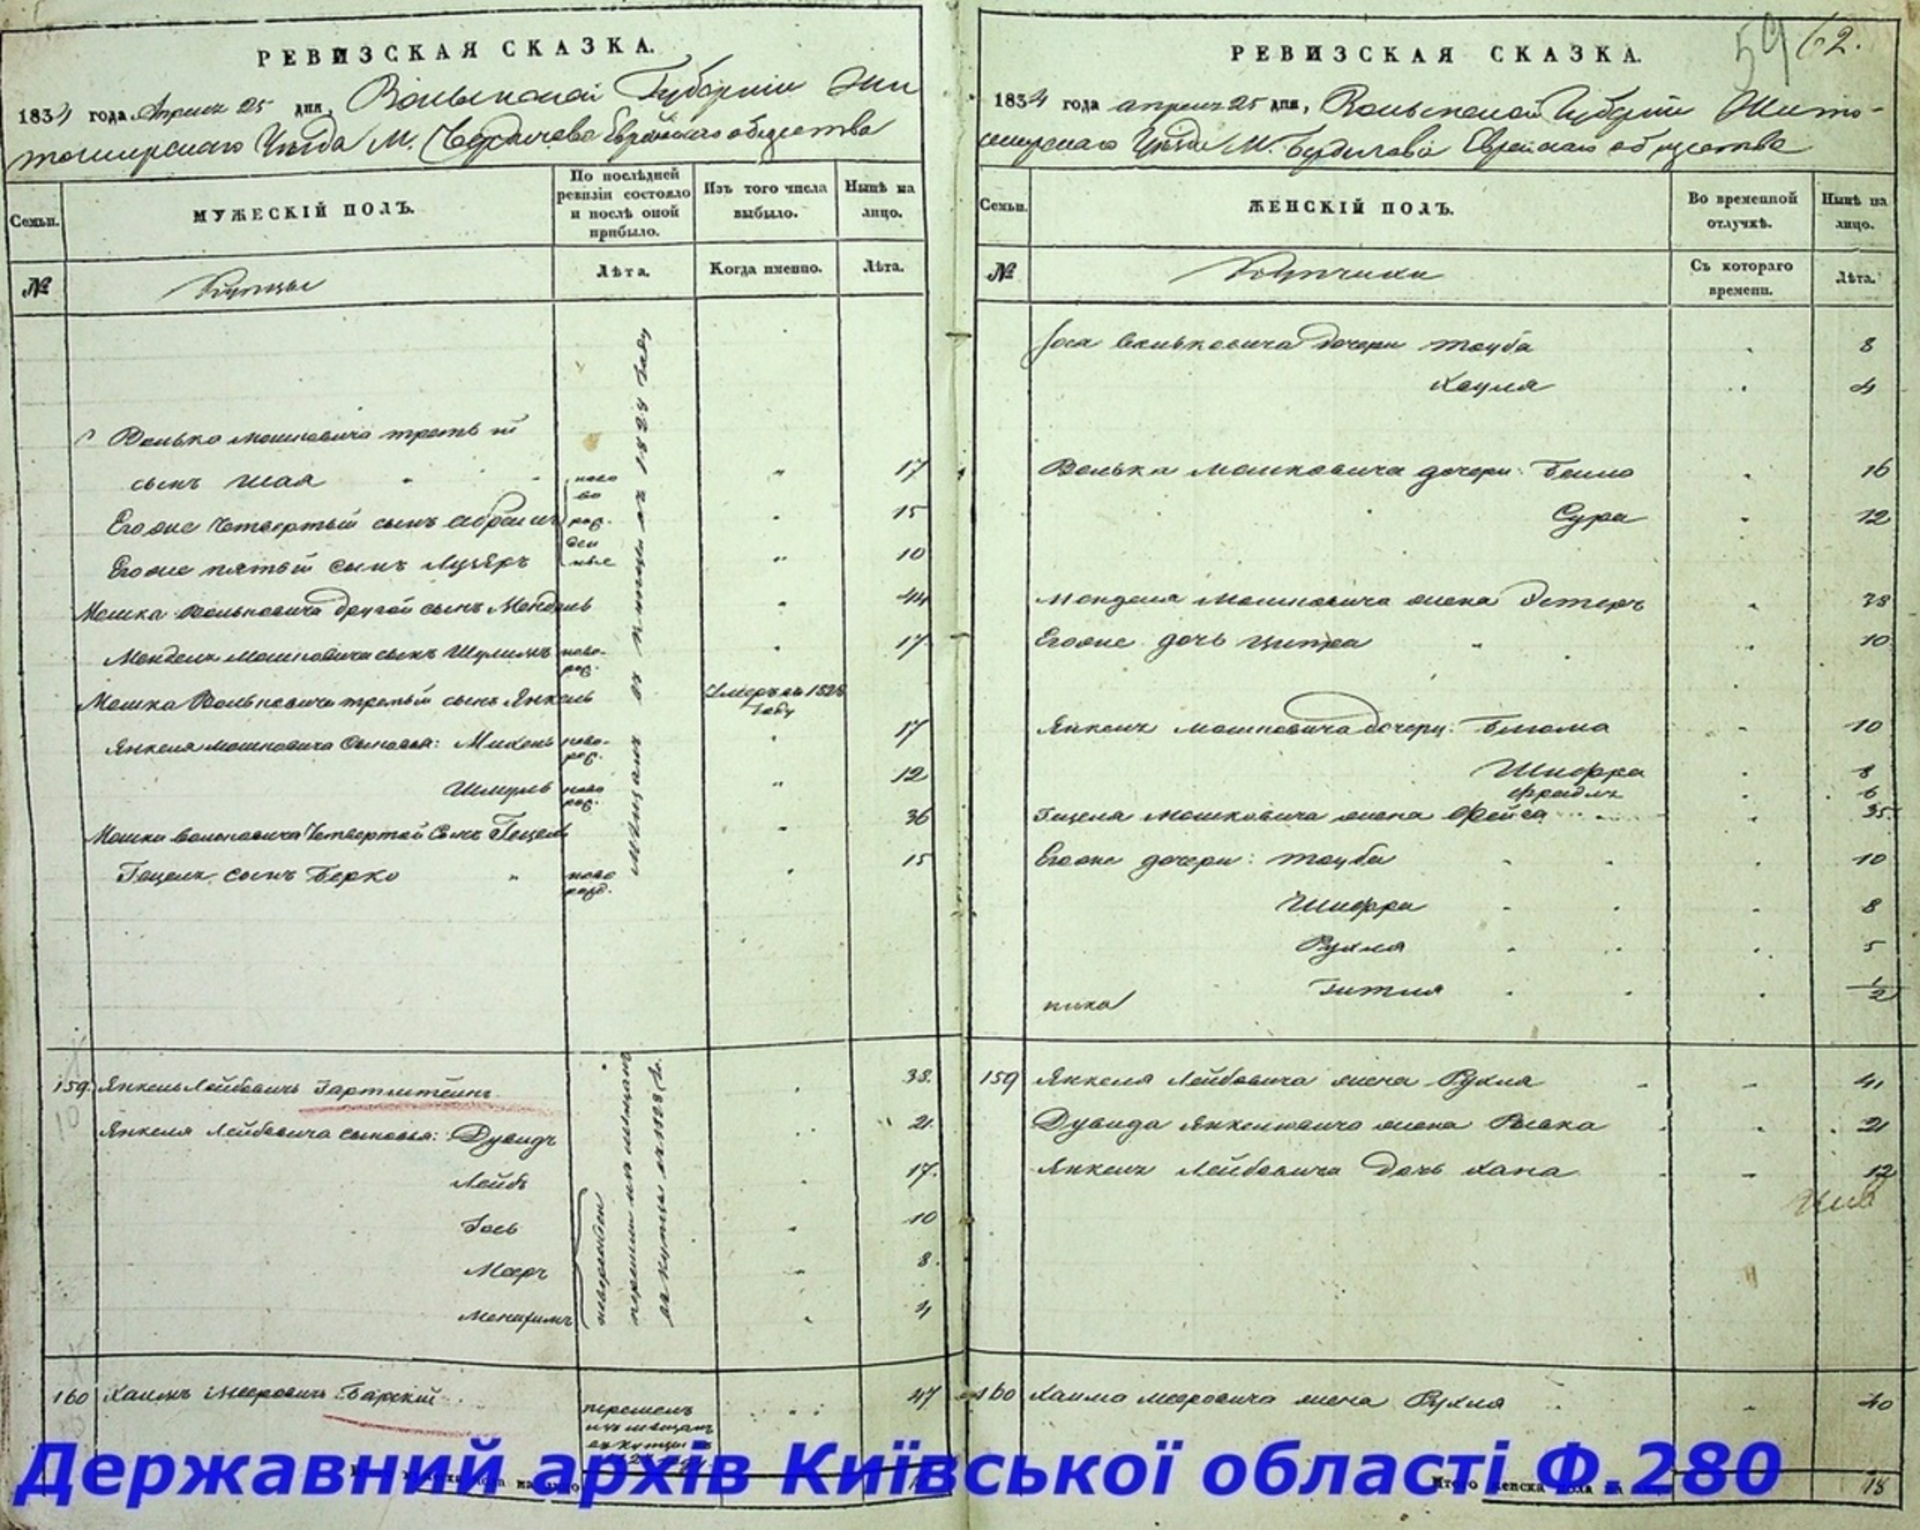 РЕВИЗСКАЯ СКАЗКА.
1834 года Апреля 25 дня, Волынской Губернии Жи
томирскаго Уезда М. Бердичева Еврейскаго общества
Семьи.
МУЖЕСКІЙ ПОЛЪ.
По послѣдней ревизіи состояло и послѣ оной прибыло.
Изъ того числа выбыло.
Нынѣ на лицо.
№
Купцы
Лѣта.
Когда именно.
Лѣта.
Волька Мошковича третьій
сынъ Шая 17
Егоже четвертый сынъ Абрамъ 15
Егоже пятый сынъ Лузеръ 10
ново
во
рож.
ден
ные
Мошка Вольковича другой сынъ Мендель 44
Менделя Мошковича сынъ Шулимъ ново-
рож. 17
Мошка Вольковича третьій сынъ Янкель умеръ въ 1828
году
Янкеля Мошковича сыновья: Михель ново-
рож. 17
Шмуль ново
рож. 12
Мошки Вольковича четвертой сынъ Гецель 36
Гецеля сынъ Берко ново
рожд. 15
въ купцы въ 1827 году
159. Янкель Лейбовичъ Гартштейнъ 38.
Янкеля Лейбовича сыновья: Дувидъ 21.
Лейбъ 17.
Іось 10
Мееръ 8.
Менахимъ 4
новорожден
перешли изъ мещанъ
въ купцы въ 1828 го.
160 Хаимъ Мееровичъ Барскій 47
перешелъ
изъ мещанъ
въ купцы въ
РЕВИЗСКАЯ СКАЗКА.
59 62.
1834 года апреля 25 дня, Волынской Губерніи Жито-
мирскаго Уезда М. Бердичева Еврейскаго общества
Семьи.
ЖЕНСКІЙ ПОЛЪ.
Во временной отлучкѣ.
Нынѣ на лицо.
№
Купчихи
Съ котораго времени.
Лѣта.
Іося Вольковича дочери Тауба 8
Хауля 4
Волька Мошковича дочери: Бейла 16
Сура 12
Менделя Мошковича жена Эстеръ 38
Егоже дочь Ципра 10
Янкеля Мошковича дочери: Блюма 10
Шифра 8
Фрейдля 6
Гецеля Мошковича жена Фейга 35
Егоже дочери: Тауба 10
Шифра 8
Рухля 5
Гитля 1/2
159 Янкеля Лейбовича жена Рухля 41
Дувида Янкелювича жена Ривка 21
Янкеля Лейбовича дочь Хана 12
160 Хаима Мееровича жена Рухля 40
Итого женска пола на 18
Державний архів Київської області Ф.280